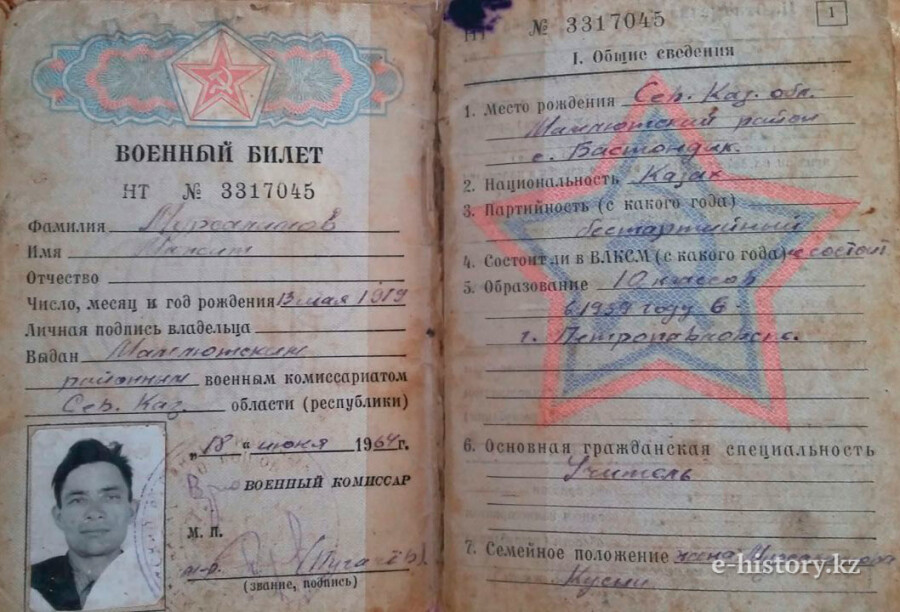 ВОЕННЫЙ БИЛЕТ
НТ № 3317045
Фамилия
Имя
Отчество
Число, месяц и год рождения 13 мая 1919
Личная подпись владельца
Выдан Мамлютским
районным военным комиссариатом
Сев. Каз. области (республики)
„18“ июня 1964г.
Врио ВОЕННЫЙ КОМИССАР
М. П.
м-р. (Пугачёв)
(звание, подпись)
НТ № 3317045
1
I. Общие сведения
1. Место рождения Сев. Каз. обл.
Мамлютский район
с. Бастондик.
2. Национальность Казах
3. Партийность (с какого года)
беспартийный
4. Состоит ли в ВЛКСМ (с какого года) не состоит
5. Образование 10 классов
в 1939 году в
г. Петропавловске.
6. Основная гражданская специальность
Учитель
7. Семейное положение жена
e-history.kz